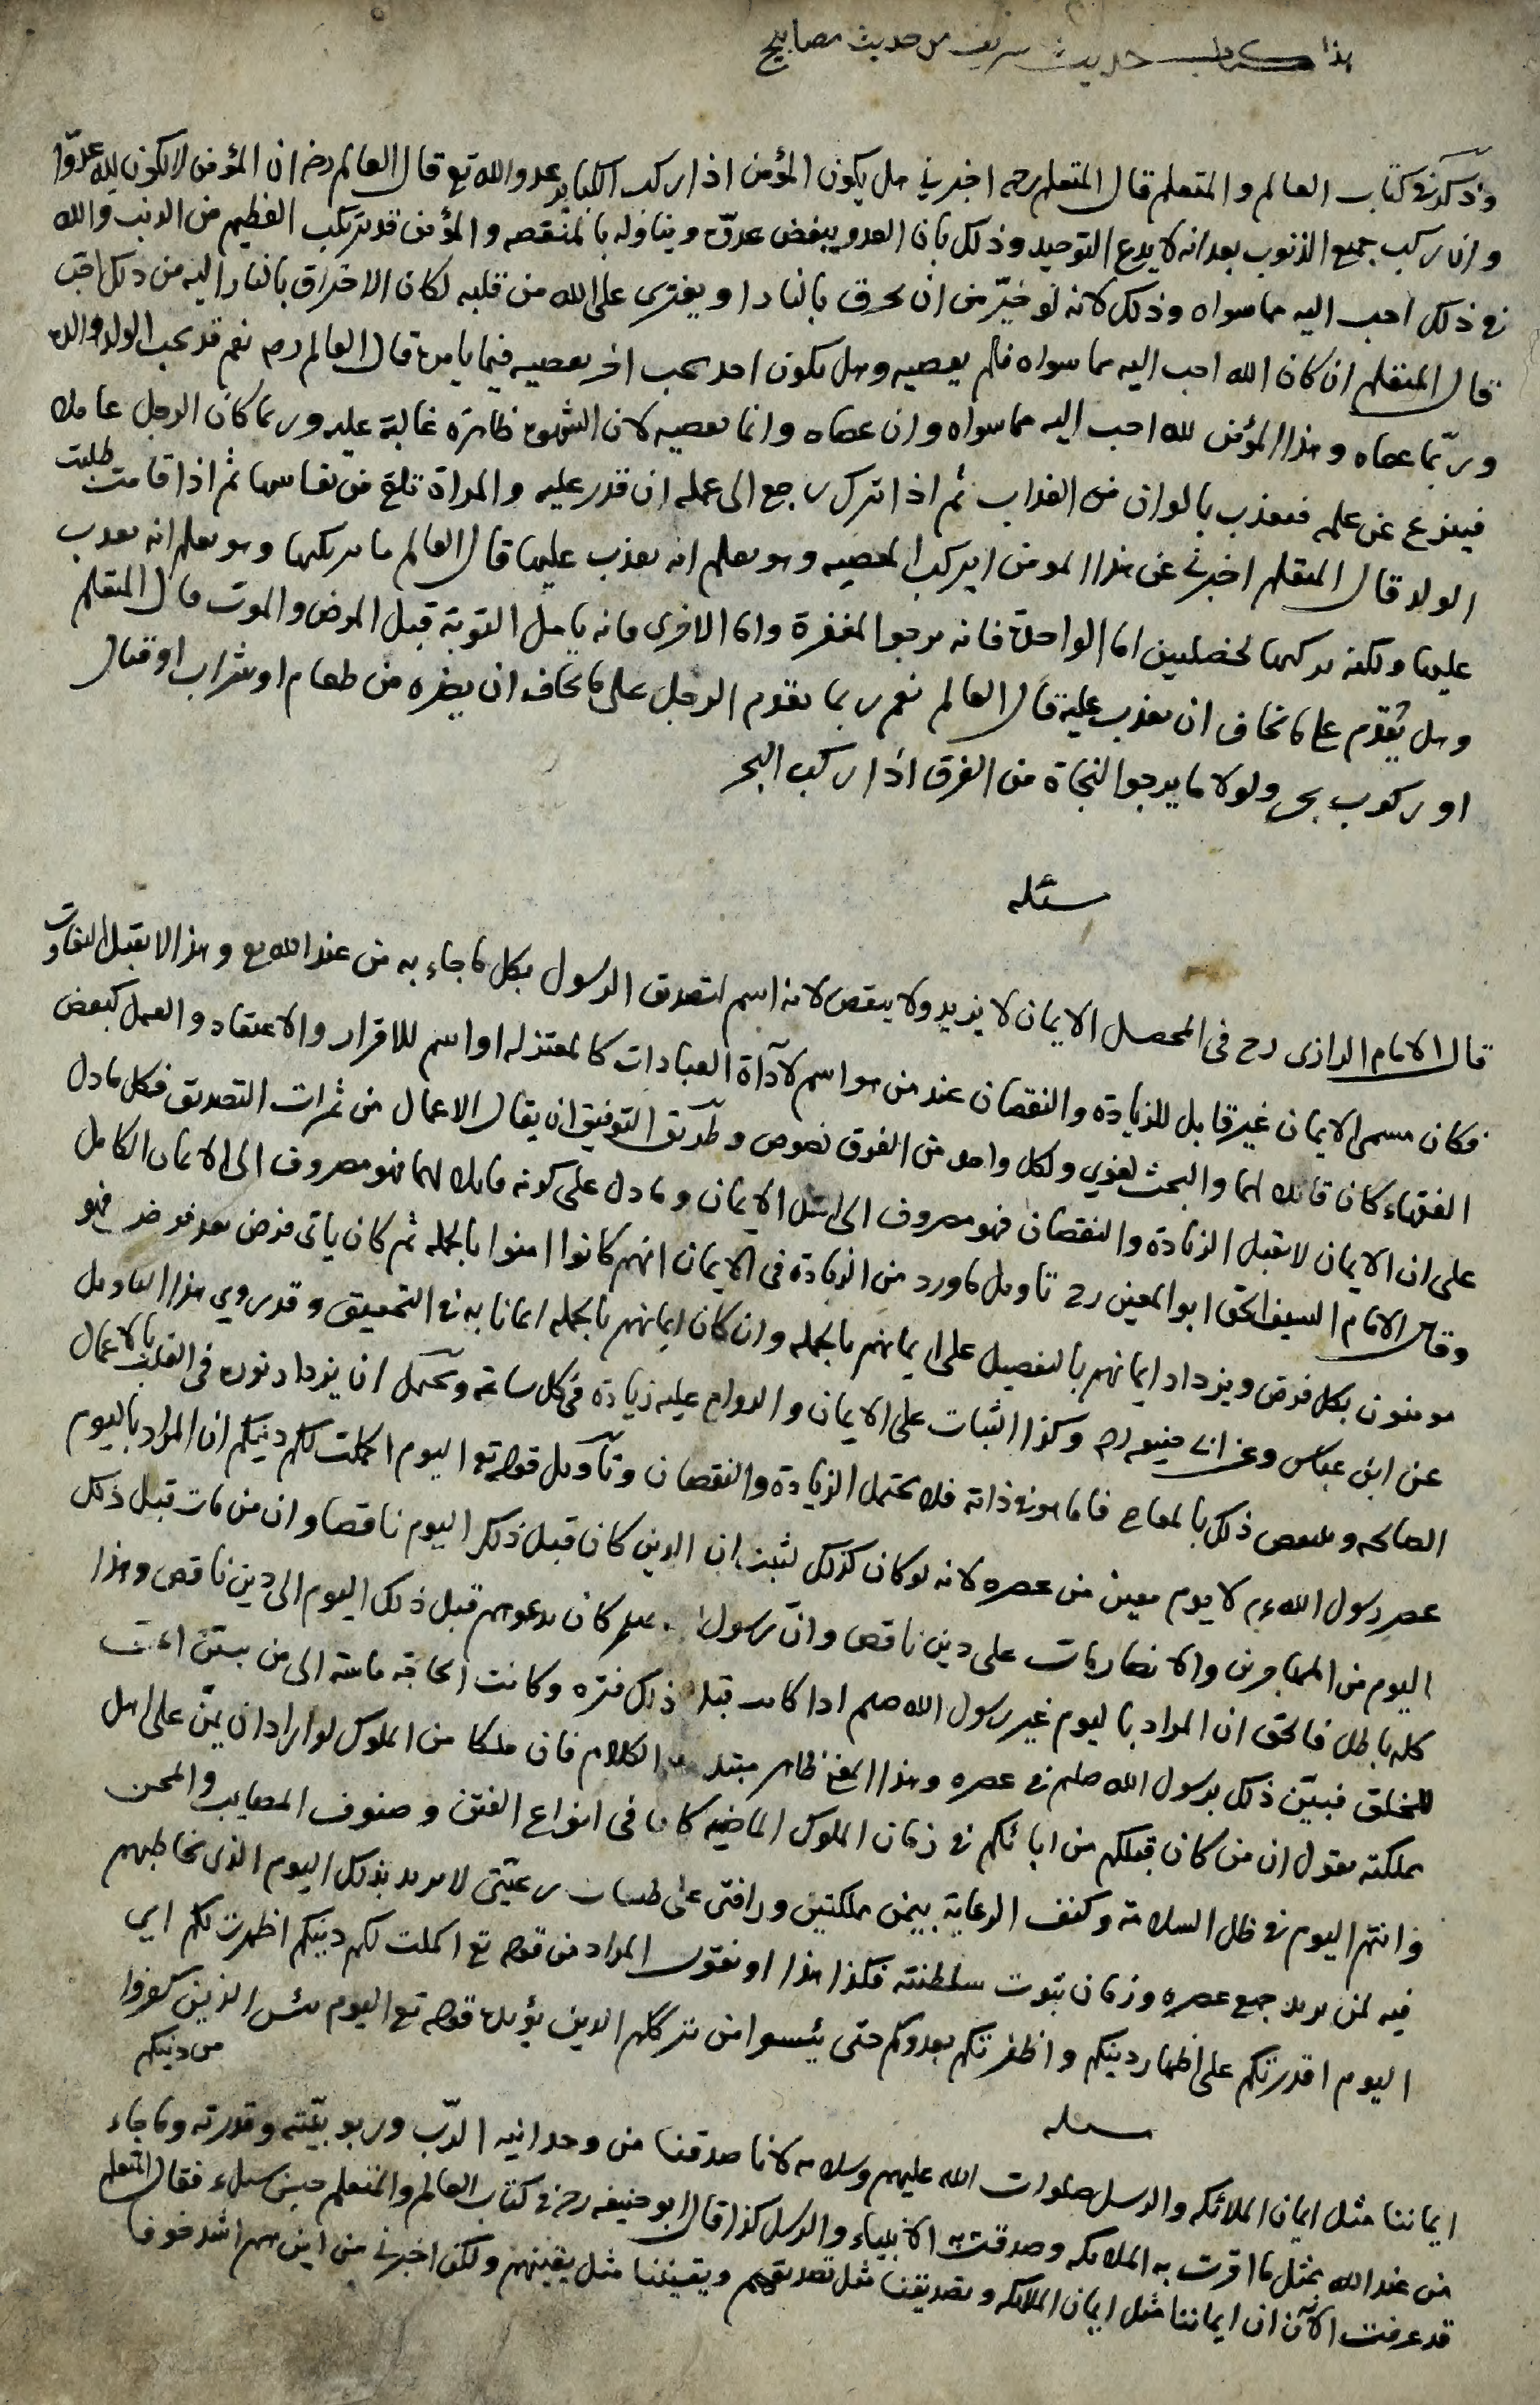 هذا كتاب حديث شريف من حديث مصابيح
وذكر في كتاب العالم والمتعلم قال المتعلم رحه اخبرني هل يكون المؤمن اذا ركب الكبائر عدو الله تع قال العالم رضه ان المؤمن لا يكون لله عدوّا
وان ركب جميع الذنوب بعد انه لا يدع التوحيد وذلك بان العدو يبغض عدوّه ويتناوله بالمنقصه والمؤمن قد يرتكب العظيم من الذنب والله
في ذلك احب اليه مما سواه وذلك لانه لو خيّر من ان يحرق بالنار او يفترى على الله من قلبه لكان الاحتراق بالنار اليه من ذلك احب
قال المتعلم ان كان الله احب اليه مما سواه فلم يعصيه وهل يكون احد يحب اخر يعصيه فيما يامره قال العالم رحه نعم قد يحب الولد والده
وربّما عصاه وهذا المؤمن لله احب اليه مما سواه وان عصاه وانما يعصيه لان الشهوة ظاهره غالبة عليه وربما كان الرجل عاملا
فينزع عن علمه فيعذب بالوان من العذاب ثم اذا ترك رجع الى عمله ان قدر عليه والمراة تلق من نفاسها ثم اذا قامت طلبت
الولد قال المتعلم اخبرني عن هذا المومن ايركب المعصيه وهو يعلم انه يعذب عليها قال العالم ما يركبها وهو يعلم انه يعذب
عليها ولكنه يركبها لخصلتين اما الواحدة فانه يرجو المغفرة واما الاخرى فانه يامل التوبة قبل المرض والموت قال المتعلم
وهل يُقدم على ما يخاف ان يعذب عليه قال العالم نعم ربما يقدم الرجل على ما يخاف ان يضره من طعام او شراب او قتال
او ركوب بحر ولولا ما يرجو النجاة من الغرق اذا ركب البحر
مسئله
قال الامام الرازى رح فى المحصل الايمان لا يزيد ولا ينقص لانه اسم لتصديق الرسول بكل ما جاء به من عند الله تع وهذا لا يقبل التفاوت
فكان مسمى الايمان غير قابل للزيادة والنقصان عند من هو اسم لآداة العبادات كالمعتزله او اسم للاقرار والاعتقاد والعمل كبعض
الفقهاء كان قابلا لهما والبحث لغوي ولكل واحد من الفرق نصوص وطريق التوفيق ان يقال الاعمال من ثمرات التصديق فكل ما دل
على ان الايمان لا يقبل الزيادة والنقصان فهو مصروف الى اصل الايمان وما دل على كونه قابلا لهما فهو مصروف الى الايمان الكامل
وقال الامام السيف الحق ابو المعين رح تاويل ما ورد من الزيادة فى الايمان انهم كانوا امنوا بالجمله ثم كان ياتى فرض بعد فرض فهو
مومنون بكل فرض ويزداد ايمانهم بالتفصيل على ايمانهم بالجمله وان كان ايمانهم بالجمله ايمانا به في التحقيق وقد روي هذا التاويل
عن ابن عباس وعن ابي حنيفه رحه وكذا الثبات على الايمان والدوام عليه زيادة في كل ساعة ويحتمل ان يزداد نوره فى القلب بالاعمال
الصالحه وينقص ذلك بالمعاصي فاما هو في ذاته فلا يحتمل الزيادة والنقصان وتأويل قوله تع اليوم اكملت لكم دينكم ان المراد باليوم
عصر رسول الله ءم لا يوم معين من عصره لانه لو كان كذلك لثبت ان الدين كان قبل ذلك اليوم ناقصا وان من مات قبل ذلك
اليوم من المهاجرين والانصار مات على دين ناقص وانّ رسول الله صلعم كان يدعوهم قبل ذلك اليوم الى دين ناقص وهذا
كله باطل فالحق ان المراد باليوم غير رسول الله صلعم اذا كانت قبل ذلك فتره وكانت الحاجة ماسة الى من يبيّن
للخلق فبيّن ذلك برسول الله صلعم في عصره وهذا المعنى ظاهر الكلام فان ملكا من الملوك لو اراد ان يمنّ على اهل
مملكته يقول ان من كان قبلكم من ابائكم في زمان الملوك الماضيه كانوا فى انواع الفتن وصنوف المصايب والمحن
وانتم اليوم في ظل السلامة وكنف الرعاية بيمن مملكتى ورافتى على طبقات رعيّتى لا يريد بذلك اليوم الذى يخاطبهم
فيه لمن يريد جميع عصره وزمان ثبوت سلطنته فكذا هذا او نقول المراد من قوله تع اكملت لكم دينكم اظهرت لكم اي
اليوم اقدرتكم على اظهار دينكم واظفرتكم بعدوكم حتى يئسوا من ترككم الدين يؤيده قوله تع اليوم يئس الذين كفروا
من دينكم
مسئله
ايماننا مثل ايمان الملائكه والرسل صلوات الله عليهم وسلامه لانا صدقنا من وحدانيه الرّب وربوبيّته وقدرته وما جاء
من عند الله بمثل ما اقرت به الملائكه وصدقت به الانبياء والرسل كذا قال ابو حنيفه رحه في كتاب العالم والمتعلم حين سئل فقال المتعلم
قد عرفت الآن ان ايماننا مثل ايمان الملائكه وتصديقنا مثل تصديقهم ويقيننا مثل يقينهم ولكن اخبرني من اين هم اشد خوفا